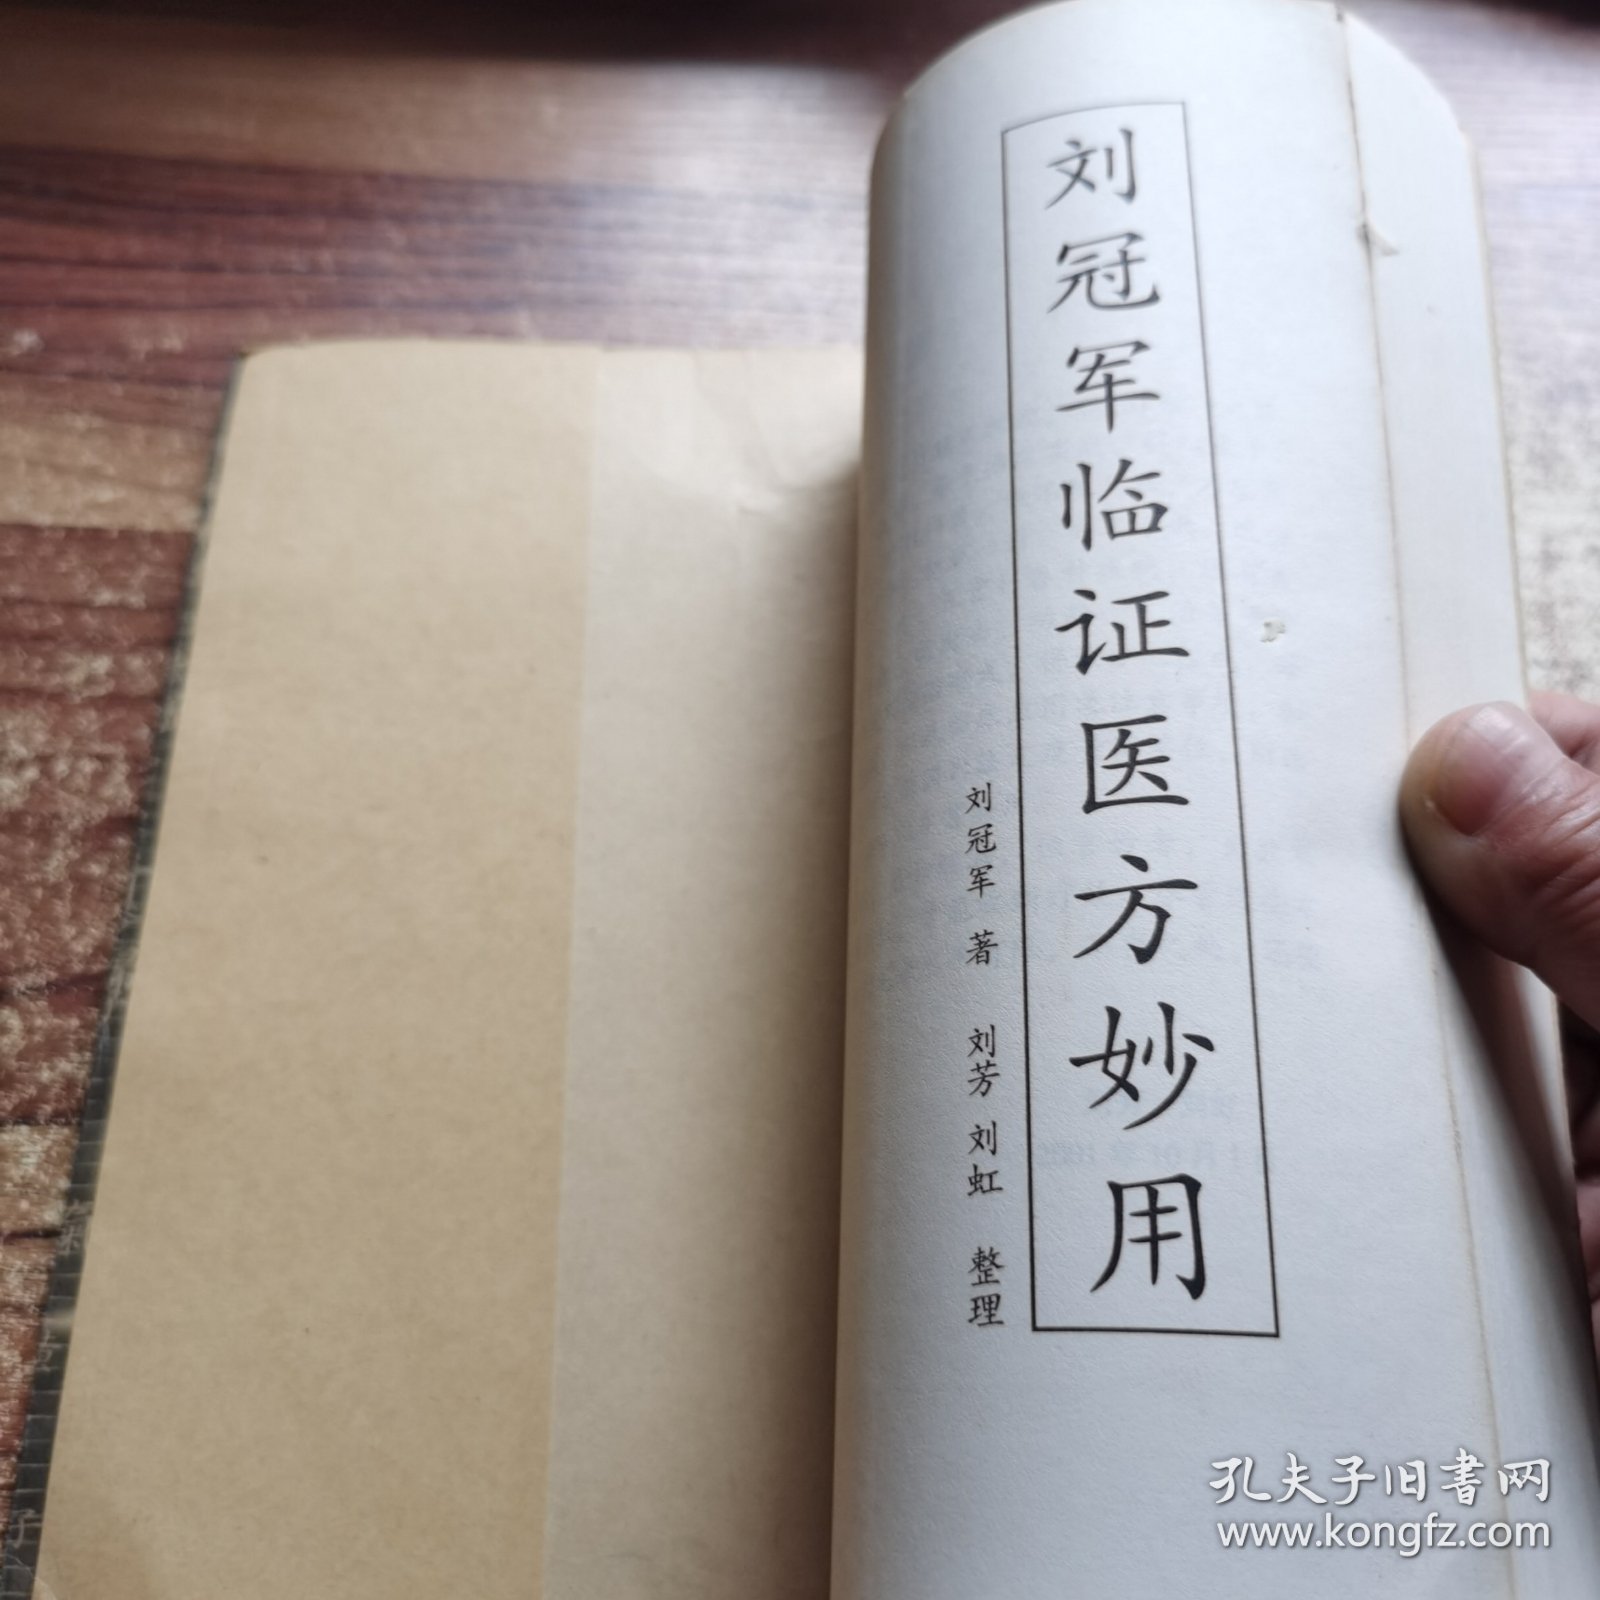 刘冠军临证医方妙用
刘冠军 著 刘芳 刘虹 整理
孔夫子旧书网
www.kongfz.com